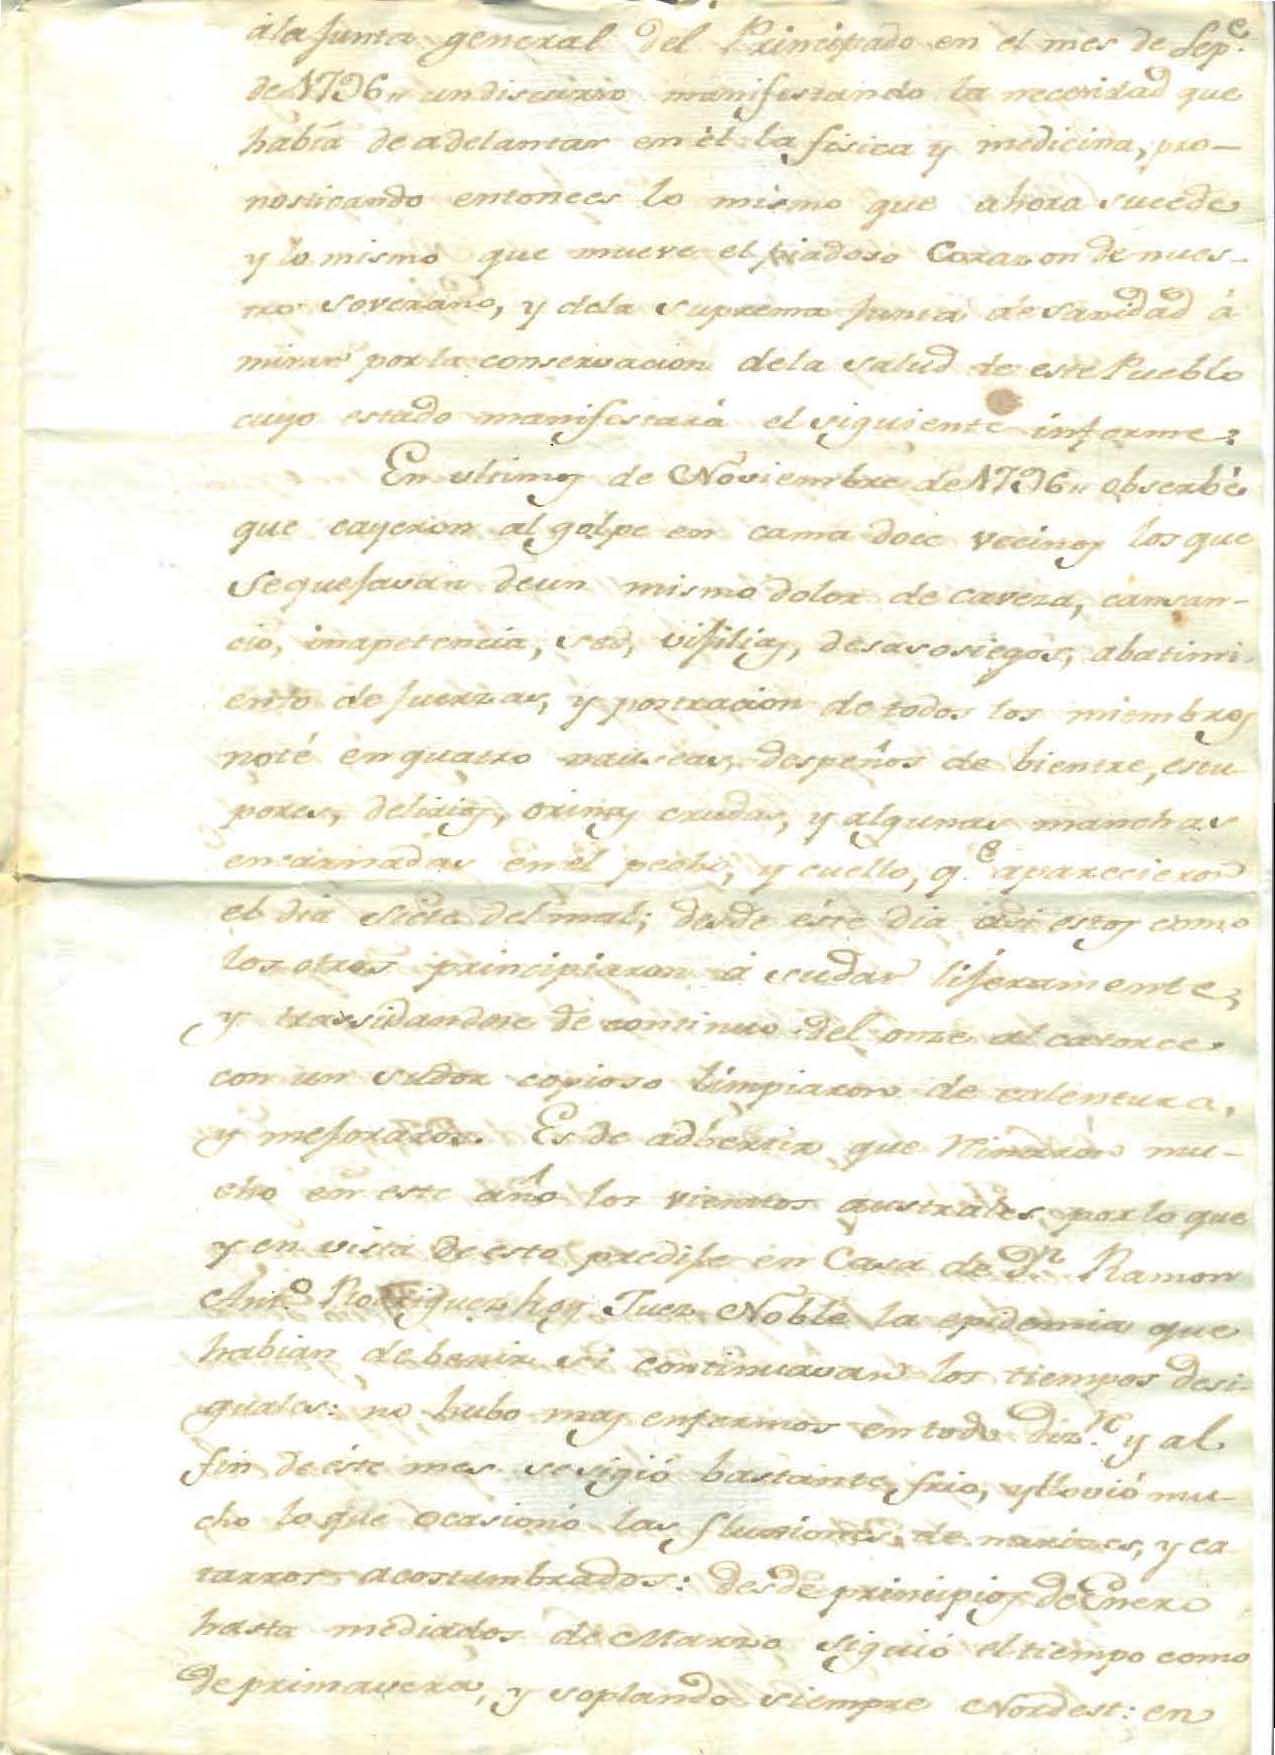 á la Junta general del Principado en el mes de Sep.e
de 1796,, un discurso manifestando la necesidad que
había de adelantar en él la fisica y medicina, pro-
nosticando entonces lo mismo que ahora sucede
y lo mismo que mueve el piadoso Corazon de nues-
tro soverano, y dela suprema Junta de sanidad á
mirar por la conservacion dela salud de este Pueblo
cuyo estado manifestará el siguiente informe:
En ultimos de Noviembre de 1796,, observé
que cayeron al golpe en cama doce vecinos los que
se quejavan de un mismo dolor de caveza, cansan-
cio, inapetencia, sed, vijilias, desasosiegos, abatimi-
ento de fuerzas, y postracion de todos los miembros
noté en quatro nauseas, despeños de bientre, estu-
pores, delirios, orinas crudas, y algunas manchas
encarnadas en el pecho, y cuello, q.e aparecieron
el dia siete del mal; desde éste dia asi estos como
los otros principiaron á sudar lijeramente,
y trassudandose de continuo del onze al catorce
con un sudor copioso limpiaron de calentura,
y mejoraron. Es de adbertir que Reinaron mu-
cho en este año los vientos australes por lo que
y en vista de esto predije en Casa de D.n Ramon
Ant.o Rodriguez hoy Juez Noble la epidemia que
habian de benir si continuavan los tiempos desi-
guales: no hubo mas enfermos en todo Diz.re y al
fin de éste mes se sigió bastante frio, y llovió mu-
cho lo que ocasionó las fluxiones de narizes, y ca-
tarros acostumbrados: desde principios de Enero
hasta mediados de Marzo siguió el tiempo como
de primavera, y soplando siempre Nordest: en